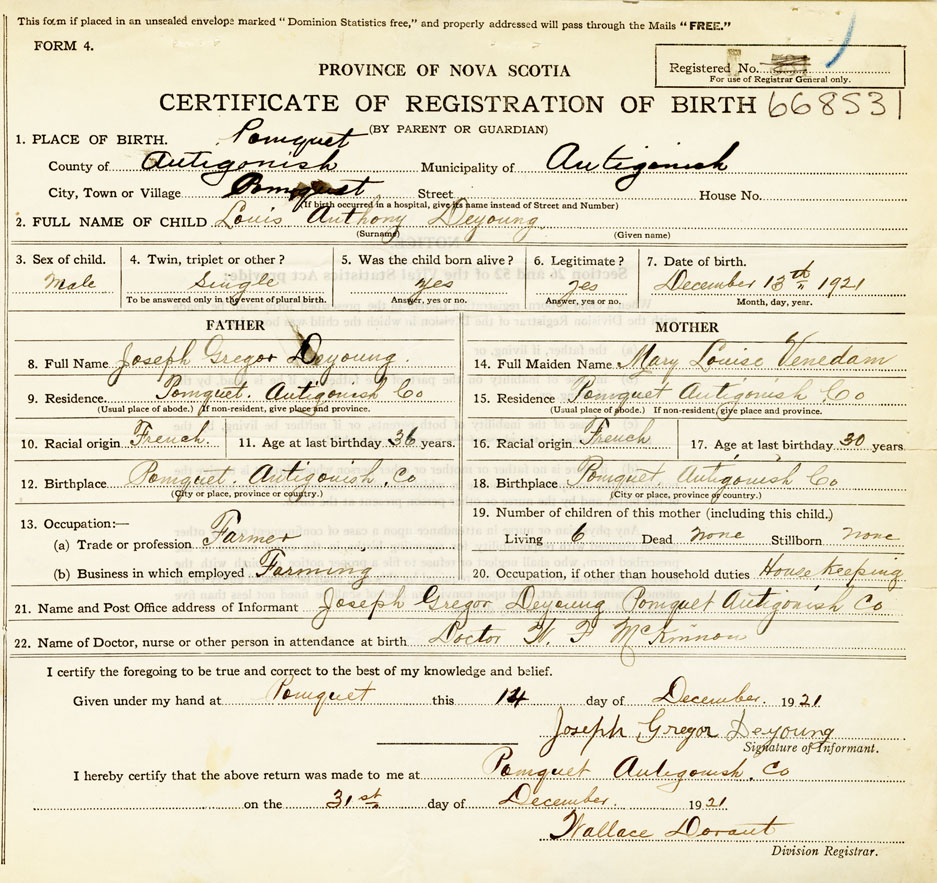 This form if placed in an unsealed envelope marked "Dominion Statistics free," and properly addressed will pass through the Mails "FREE."
FORM 4.
Registered No.
For use of Registrar General only.
PROVINCE OF NOVA SCOTIA
CERTIFICATE OF REGISTRATION OF BIRTH 668531
(BY PARENT OR GUARDIAN)
1. PLACE OF BIRTH. Pomquet
County of Antigonish Municipality of Antigonish
City, Town or Village Pomquet Street House No.
(If birth occurred in a hospital, give its name instead of Street and Number)
2. FULL NAME OF CHILD Louis Anthony Deyoung
(Surname) (Given name)
3. Sex of child. 4. Twin, triplet or other? 5. Was the child born alive? 6. Legitimate? 7. Date of birth.
Male Single yes yes December 13th 1921
To be answered only in the event of plural birth. Answer, yes or no. Answer, yes or no. Month, day, year.
FATHER MOTHER
8. Full Name Joseph Gregor Deyoung. 14. Full Maiden Name Mary Louise Venedam
9. Residence Pomquet. Antigonish Co 15. Residence Pomquet Antigonish Co
(Usual place of abode.) If non-resident, give place and province. (Usual place of abode.) If non-resident, give place and province.
10. Racial origin French 11. Age at last birthday 36 years. 16. Racial origin French 17. Age at last birthday 30 years
12. Birthplace Pomquet. Antigonish. Co 18. Birthplace Pomquet Antigonish Co
(City or place, province or country.) (City or place, province or country.)
13. Occupation:— 19. Number of children of this mother (including this child.)
(a) Trade or profession Farmer Living 6 Dead none Stillborn none
(b) Business in which employed Farming 20. Occupation, if other than household duties House Keeping
21. Name and Post Office address of Informant Joseph Gregor Deyoung Pomquet Antigonish Co
22. Name of Doctor, nurse or other person in attendance at birth Doctor W. F McKinnon
I certify the foregoing to be true and correct to the best of my knowledge and belief.
Given under my hand at Pomquet this 14 day of December. 1921
Joseph Gregor Deyoung
Signature of Informant.
I hereby certify that the above return was made to me at Pomquet Antigonish. Co
on the 31st day of December. 1921
Wallace Dorant
Division Registrar.